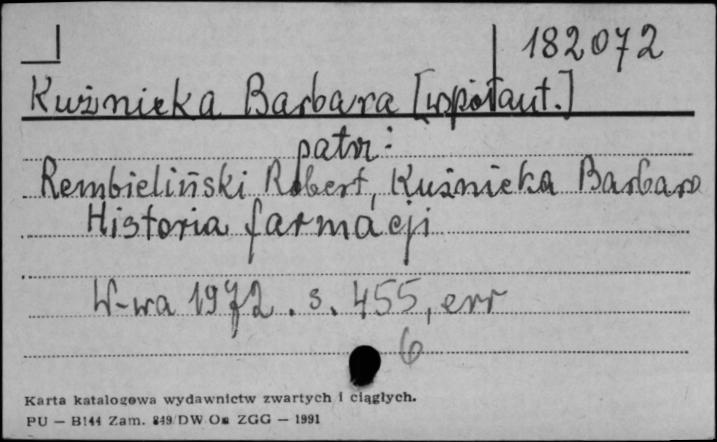 182072
Kuźnicka Barbara [współaut.]
patrz:
Rembieliński Robert, Kuźnicka Barbara
Historia farmacji
W-wa 1972. s. 455, err
6
Karta katalogowa wydawnictw zwartych i ciągłych.
PU — B144 Zam. 849/DW Os ZGG — 1991